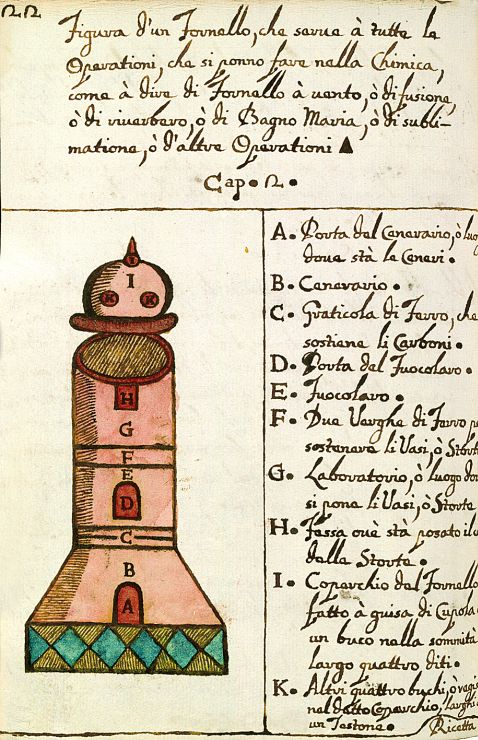 22
Figura d'un Fornello, che serue à tutte le
Operationi, che si ponno fare nella Chimica,
come à dire di Fornello à vento, ò di fusione,
ò di riuerbero, ò di Bagno Maria, ò di subli-
matione, ò d'altre Operationi
Cap. 2.
I
K K
H
G
F
E
D
C
B
A
A. Porta del Cenerario, ò luo
doue stà le Ceneri.
B. Cenerario.
C. Graticola di Ferro, che
sostiene li Carboni.
D. Porta del Fuocolaro.
E. Fuocolaro.
F. Due Verghe di Ferro pe
sostenere li Vasi, ò Storte
G. Laboratorio, ò luogo do
si pone li Vasi, ò Storte
H. Fessa oue stà posato il c
delle Storte.
I. Coperchio del Fornello
fatto à guisa di Cupola c
un buco nella sommità
largo quattro diti.
K. Altri quattro buchi, ò regis
nel detto Coperchio, larghi
un Testone.
Ricetta